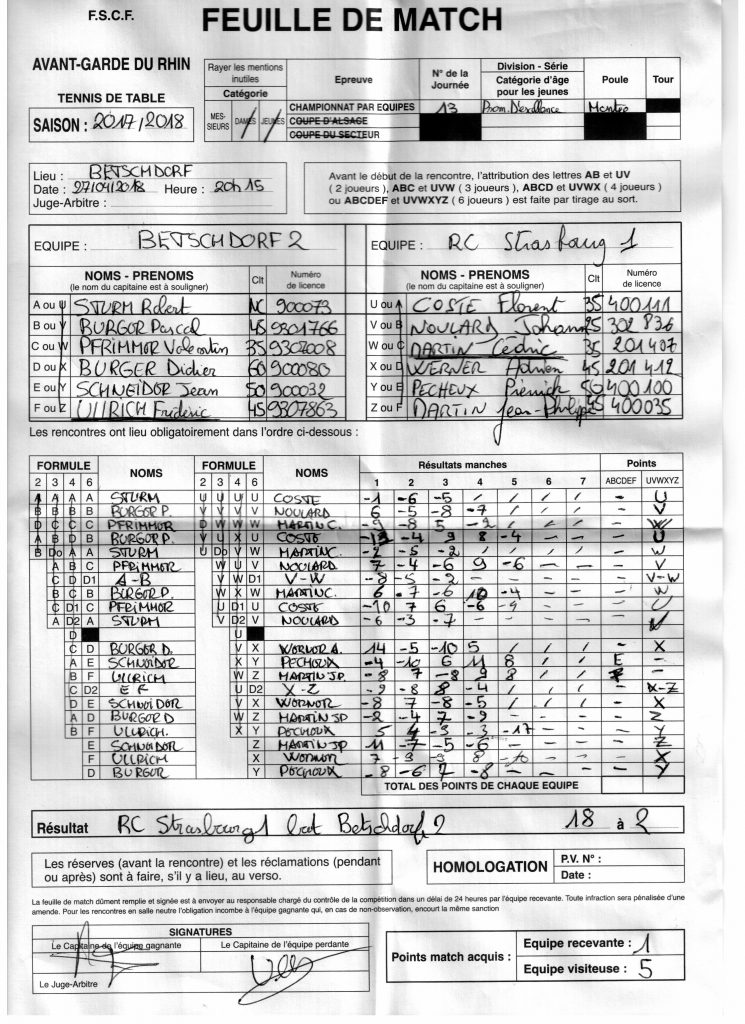 F.S.C.F.
FEUILLE DE MATCH
AVANT-GARDE DU RHIN
TENNIS DE TABLE
SAISON : 2017/2018
Rayer les mentions inutiles
Catégorie
MES-SIEURS DAMES JEUNES
Epreuve
N° de la Journée
Division - Série
Catégorie d'âge pour les jeunes
Poule
Tour
CHAMPIONNAT PAR EQUIPES 13 Prom. D'excellence
COUPE D'ALSAGE
COUPE DU SECTEUR
Lieu : BETSCHDORF
Date : 27/04/2018 Heure : 20h15
Juge-Arbitre :
Avant le début de la rencontre, l'attribution des lettres AB et UV
( 2 joueurs ), ABC et UVW ( 3 joueurs ), ABCD et UVWX ( 4 joueurs )
ou ABCDEF et UVWXYZ ( 6 joueurs ) est faite par tirage au sort.
EQUIPE : BETSCHDORF 2 EQUIPE : RC Strasbourg 1
NOMS - PRENOMS Clt Numéro de licence NOMS - PRENOMS Clt Numéro de licence
(le nom du capitaine est à souligner) (le nom du capitaine est à souligner)
A ou U STURM Robert NC 900073 U ou A COSTE Florent 35 400111
B ou V BURGER Pascal 45 9301766 V ou B NOULARD Johann 25 302 836
C ou W PFRIMMER Valentin 35 9307008 W ou C MARTIN Cédric 35 201407
D ou X BURGER Didier 60 900080 X ou D WERNER Adrien 45 201 412
E ou Y SCHNEIDER Jean 50 900032 Y ou E PECHEUX 50 400100
F ou Z ULLRICH Frédéric 45 9307863 Z ou F MARTIN Jean-Philippe 45 400035
Les rencontres ont lieu obligatoirement dans l'ordre ci-dessous :
FORMULE NOMS FORMULE NOMS Résultats manches Points
2 3 4 6 2 3 4 6 1 2 3 4 5 6 7 ABCDEF UVWXYZ
A A A A STURM U U U U COSTE -1 -6 -5 / / / / - U
B B B B BURGER P. V V V V NOULARD 6 -5 -8 -7 / / / - V
D C C C PFRIMMER D W W W MARTIN C. -9 -8 5 -2 / / / - W
A B D B BURGER P. V V X U COSTE -12 -4 9 8 -4 - - - U
B Do A A STURM U Do V W MARTIN C. -2 -5 -2 / / / / - W
A B C PFRIMMER W U V NOULARD 7 -4 -6 9 -6 - - - V
C D D1 A-B V W D1 V-W -8 -5 -2 - - - - - V-W
B C B BURGER P. W X W MARTIN C. 6 -7 -6 10 -4 - - - W
C D1 C PFRIMMER U D1 U COSTE -10 7 6 -6 -9 - - - U
A D2 A STURM V D2 V NOULARD -6 -3 -7 - - - - - V
D U
C D BURGER D. V X WERNER A. 14 -5 -10 5 / / / - X
A E SCHNEIDER X Y PECHEUX -4 -10 6 11 8 / / E -
B F ULLRICH W Z MARTIN JP. -8 7 -8 9 8 / / F -
C D2 E F U D2 X-Z -9 -8 8 -4 / / / - X-Z
D E SCHNEIDER V X WERNER -8 7 -8 -5 / / / - X
A D BURGER D W Z MARTIN JP -2 -4 7 -9 - - - - Z
B F ULLRICH. X Y PECHEUX 5 4 -3 -3 -17 - - - Y
E SCHNEIDER Z MARTIN JP 11 -7 -5 -6 - - - - Z
F ULLRICH X WERNER 7 -3 -3 8 -10 - - - X
D BURGER Y PECHEUX -8 -6 7 -8 - - - - Y
TOTAL DES POINTS DE CHAQUE EQUIPE
Résultat RC Strasbourg 1 bat Betschdorf 2 18 à 2
Les réserves (avant la rencontre) et les réclamations (pendant
ou après) sont à faire, s'il y a lieu, au verso.
HOMOLOGATION
P.V. N° :
Date :
La feuille de match dûment remplie et signée est à envoyer au responsable chargé du contrôle de la compétition dans un délai de 24 heures par l'équipe recevante. Toute infraction sera pénalisée d'une
amende. Pour les rencontres en salle neutre l'obligation incombe à l'équipe gagnante qui, en cas de non-observation, encourt la même sanction
SIGNATURES
Le Capitaine de l'équipe gagnante Le Capitaine de l'équipe perdante
Le Juge-Arbitre
Points match acquis :
Equipe recevante : 1
Equipe visiteuse : 5